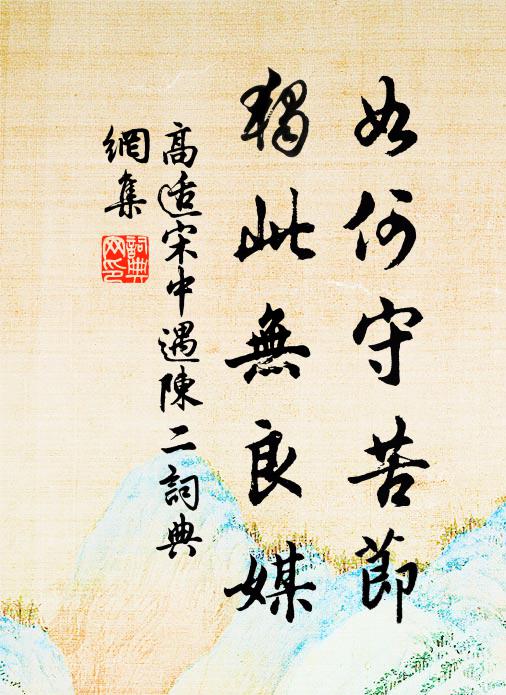 如何守苦節
獨此無良媒
高适宋中遇陳二詞典
網集
詞典
网印